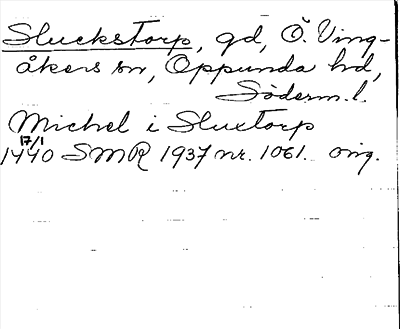 Sluckstorp, gd, Ö. Ving-
åkers sn, Oppunda hd,
Söderm. l.
Michel i Sluxtorp
17/1
1440 SMR 1937 nr. 1061. orig.